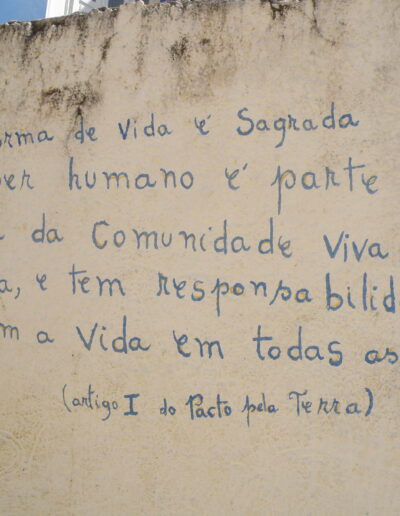 orma de vida é Sagrada
er humano é parte
da Comunidade viva
a, e tem responsabilid
m a vida em todas as
(artigo I do Pacto pela Terra)